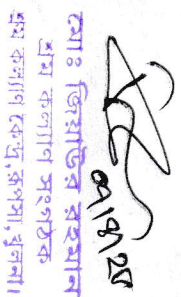 ০৭/৭/২৫
মোঃ মিযানুর রহমান
শ্রম কল্যাণ সংগঠক
শ্রম কল্যাণ কেন্দ্র, রূপসা, খুলনা।